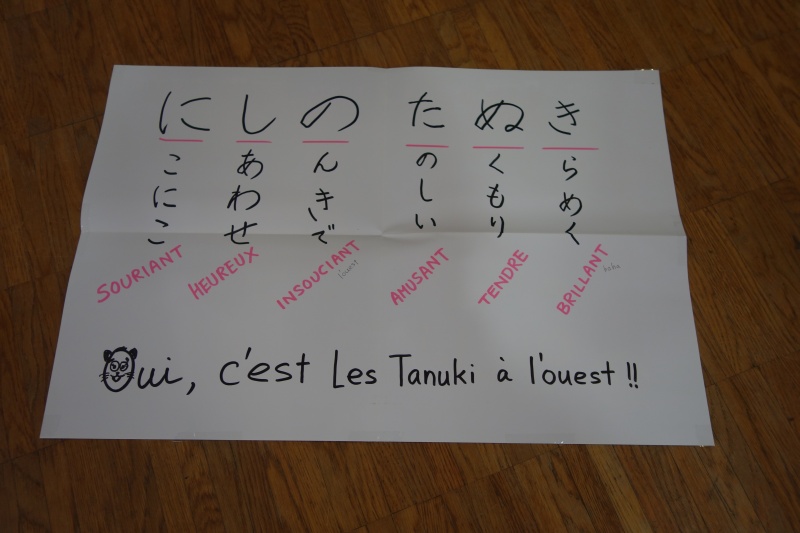 にしの たぬき
こにこ
あわせ
んきで
のしい
くもり
らめく
SOURIANT
HEUREUX
INSOUCIANT
l'ouest
AMUSANT
TENDRE
BRILLANT
Oui, c'est Les Tanuki à l'ouest !!